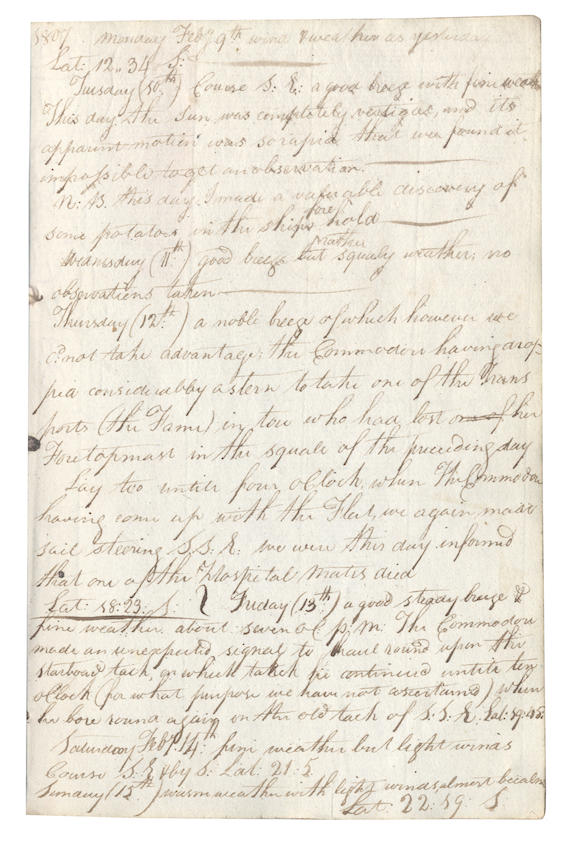 1807. Monday Feby 9th wind & weather as yesterday
Lat: 12..34 S:
Tuesday (10th) Course S. E: a good breeze with fine weath
This day the Sun was completely vertical, and its
apparent motion was so rapid that we found it
impossible to get an observation.
N: B. this day I made a valuable discovery of
some potatoes in the ships fore hold
Wednesday (11th) good breeze but rather squaly weather; no
observations taken
Thursday (12th) a noble breeze of which however we
cd not take advantage: the Commodore having drop-
ped considerably astern to take one of the Trans
ports (the Fame) in tow who had lost one of her
Foretopmast in the squals of the preceding day
Lay too untill four oClock, when The Commodore
having come up with the Fleet, we again made
sail steering S.S.E: we were this day informed
that one of the Hospital mates died
Lat: 18:23. S: Friday (13th) a good steady breeze &
fine weather. about seven oC p:m: The Commodore
made an unexpected signal to haul round upon the
starboard tack, on which tack he continued untill ten
oClock (for what purpose we have not ascertained) when
he bore round again on the old tack of S.S.E. Lat: 19:45:
Saturday Feby 14th fine weather but light winds
Course S.S.E & by S. Lat: 21:5
Sunday (15th) warm weather with light winds, almost becalm
Lat: 22:59: S